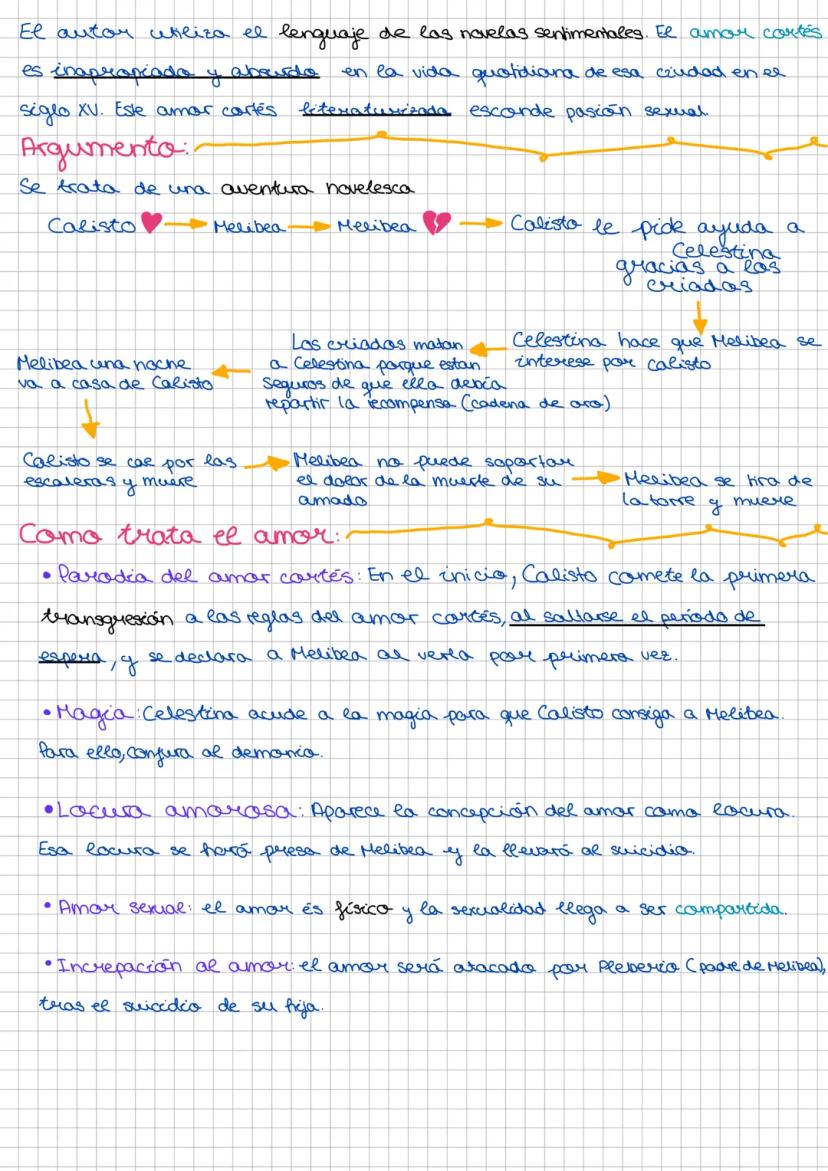 El autor utiliza el lenguaje de las novelas sentimentales. El amor cortés
es inapropiado y absurdo en la vida quotidiana de esa ciudad en el
siglo XV. Este amor cortés literaturizado esconde pasión sexual.
Argumento:
Se trata de una aventura novelesca
Calisto → Melibea → Melibea → Calisto le pide ayuda a
Celestina
gracias a los
criados
Celestina hace que Melibea se
interese por Calisto
Los criados matan
a Celestina porque estan
seguros de que ella debía
repartir la recompensa (cadena de oro)
Melibea una noche
va a casa de Calisto
Calisto se cae por las
escaleras y muere
Melibea no puede soportar
el dolor de la muerte de su
amado
Melibea se tira de
la torre y muere
Como trata el amor:
• Parodia del amor cortés: En el inicio, Calisto comete la primera
transgresión a las reglas del amor cortés, al saltarse el período de
espera, y se declara a Melibea al verla por primera vez.
• Magia: Celestina acude a la magia para que Calisto consiga a Melibea.
Para ello, conjura al demonio.
• Locura amorosa: Aparece la concepción del amor como locura.
Esa locura se hará presa de Melibea y la llevará al suicidio.
• Amor sexual: el amor és físico y la sexualidad llega a ser compartida.
• Increpación al amor: el amor será atacado por Pleberio (padre de Melibea),
tras el suicidio de su hija.